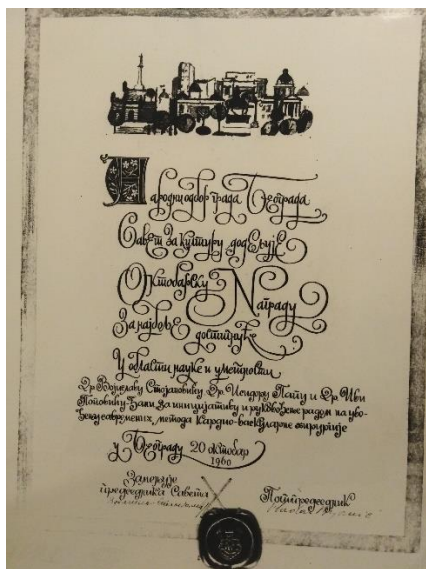 Народни одбор града Београда
Савет за културу додељује
Октобарску Награду
За најбоље достигнуће
У области науке и уметности
Др. Војиславу Стојановићу, Др. Исидору Папу и Др. Иви
Поповићу-Ђани за иницијативу и руковођење радом на уво-
ђењу савремених метода кардио-васкуларне хирургије
У Београду 20 октобар
1960
Заменује
председника Савета
Потпредседник